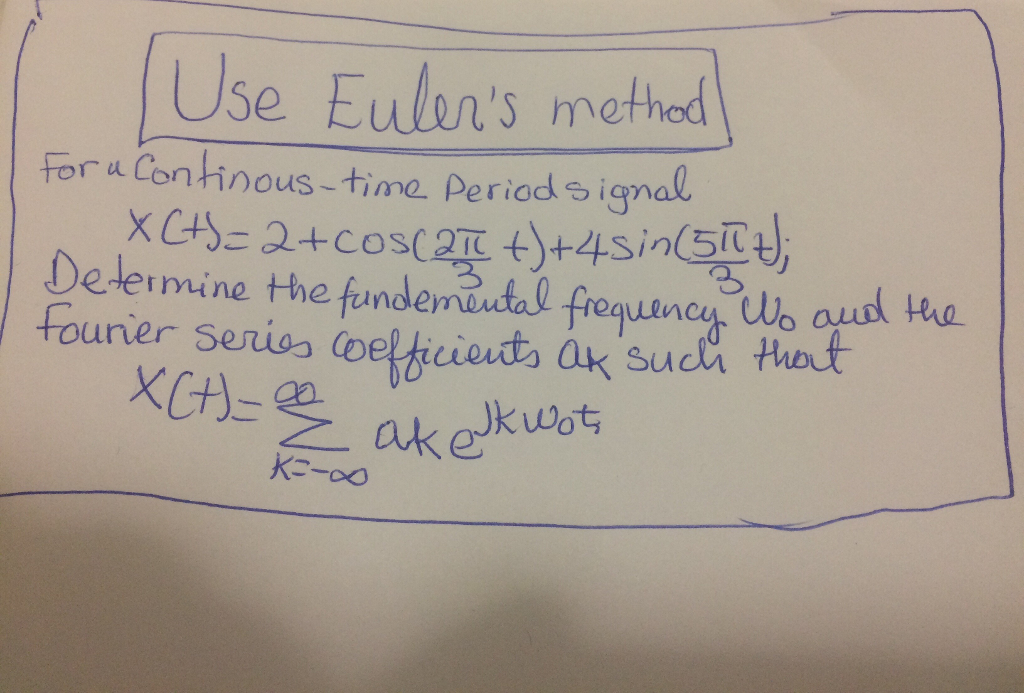 Use Euler's method
For a Continous-time Period signal
X(t)= 2+cos(2π/3 t)+4sin(5π/3 t);
Determine the fundemental frequency W0 and the
fourier series coefficients ak such that
X(t)= ∞∑k=-∞ ak e^jkw0t;